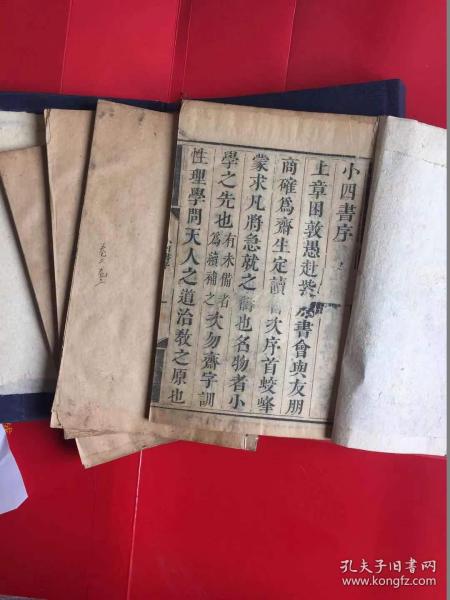 小四書序
上章困敦愚赴紫書會與友朋
商確為齋生定讀次序首蛟峰
蒙求凡將急就之也名物者小
學之先也有未備者為續補之次勿齋字訓
性理學問天人之道治教之原也
孔夫子旧书网
www.kongfz.com